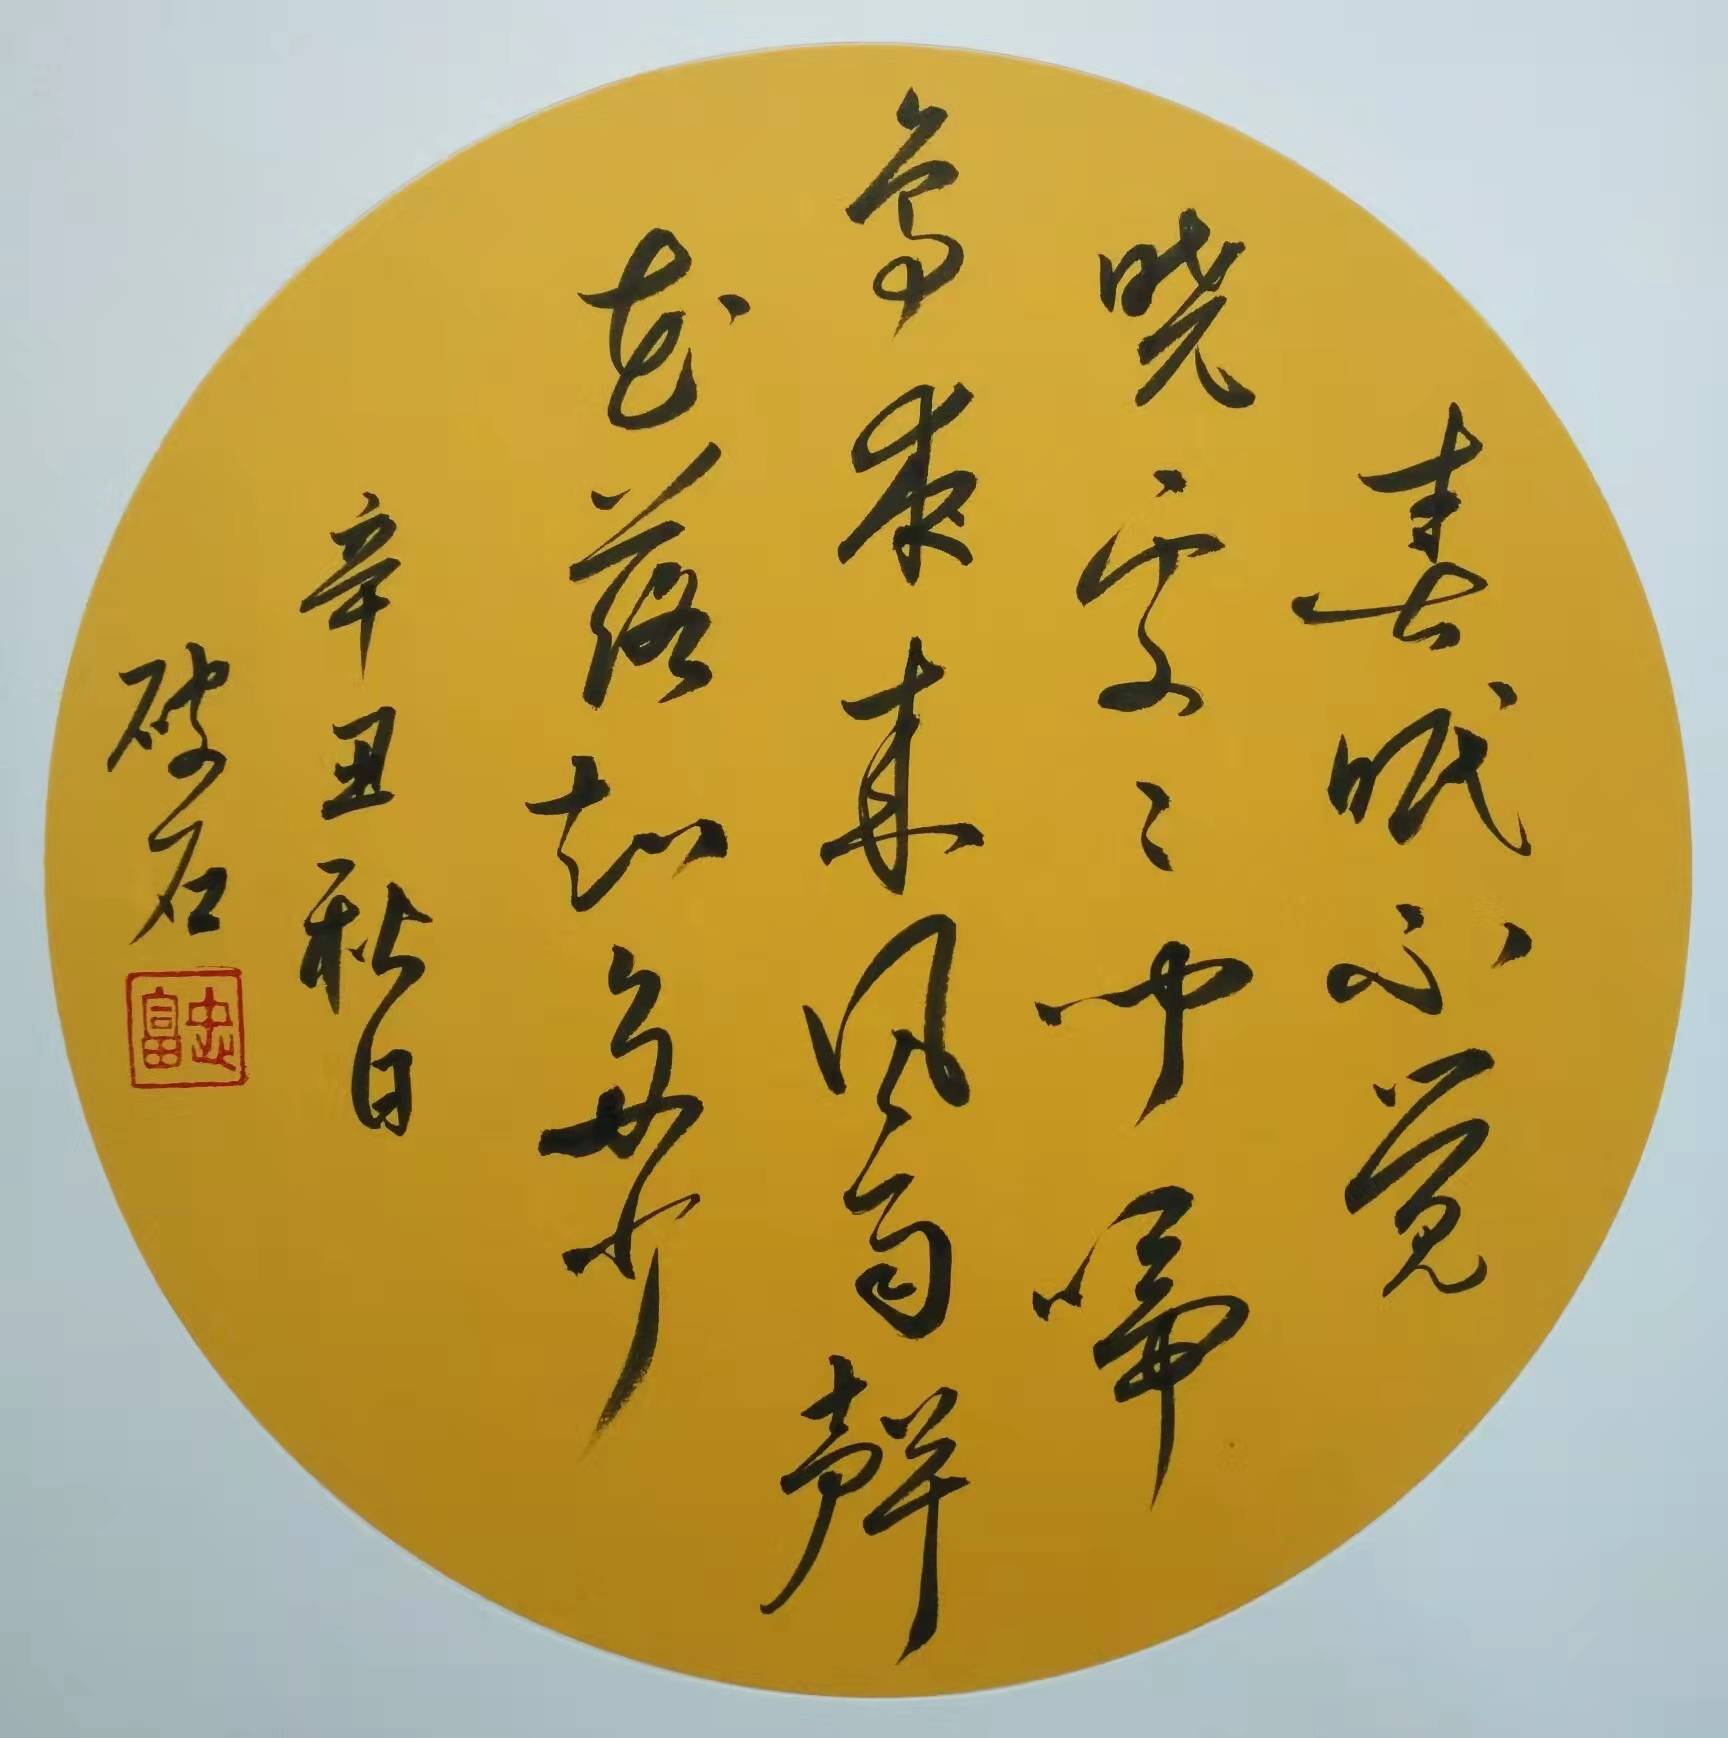 春眠不觉
晓处处闻啼
鸟夜来风雨聲
花落知多少
辛丑秋日
破石
忠富